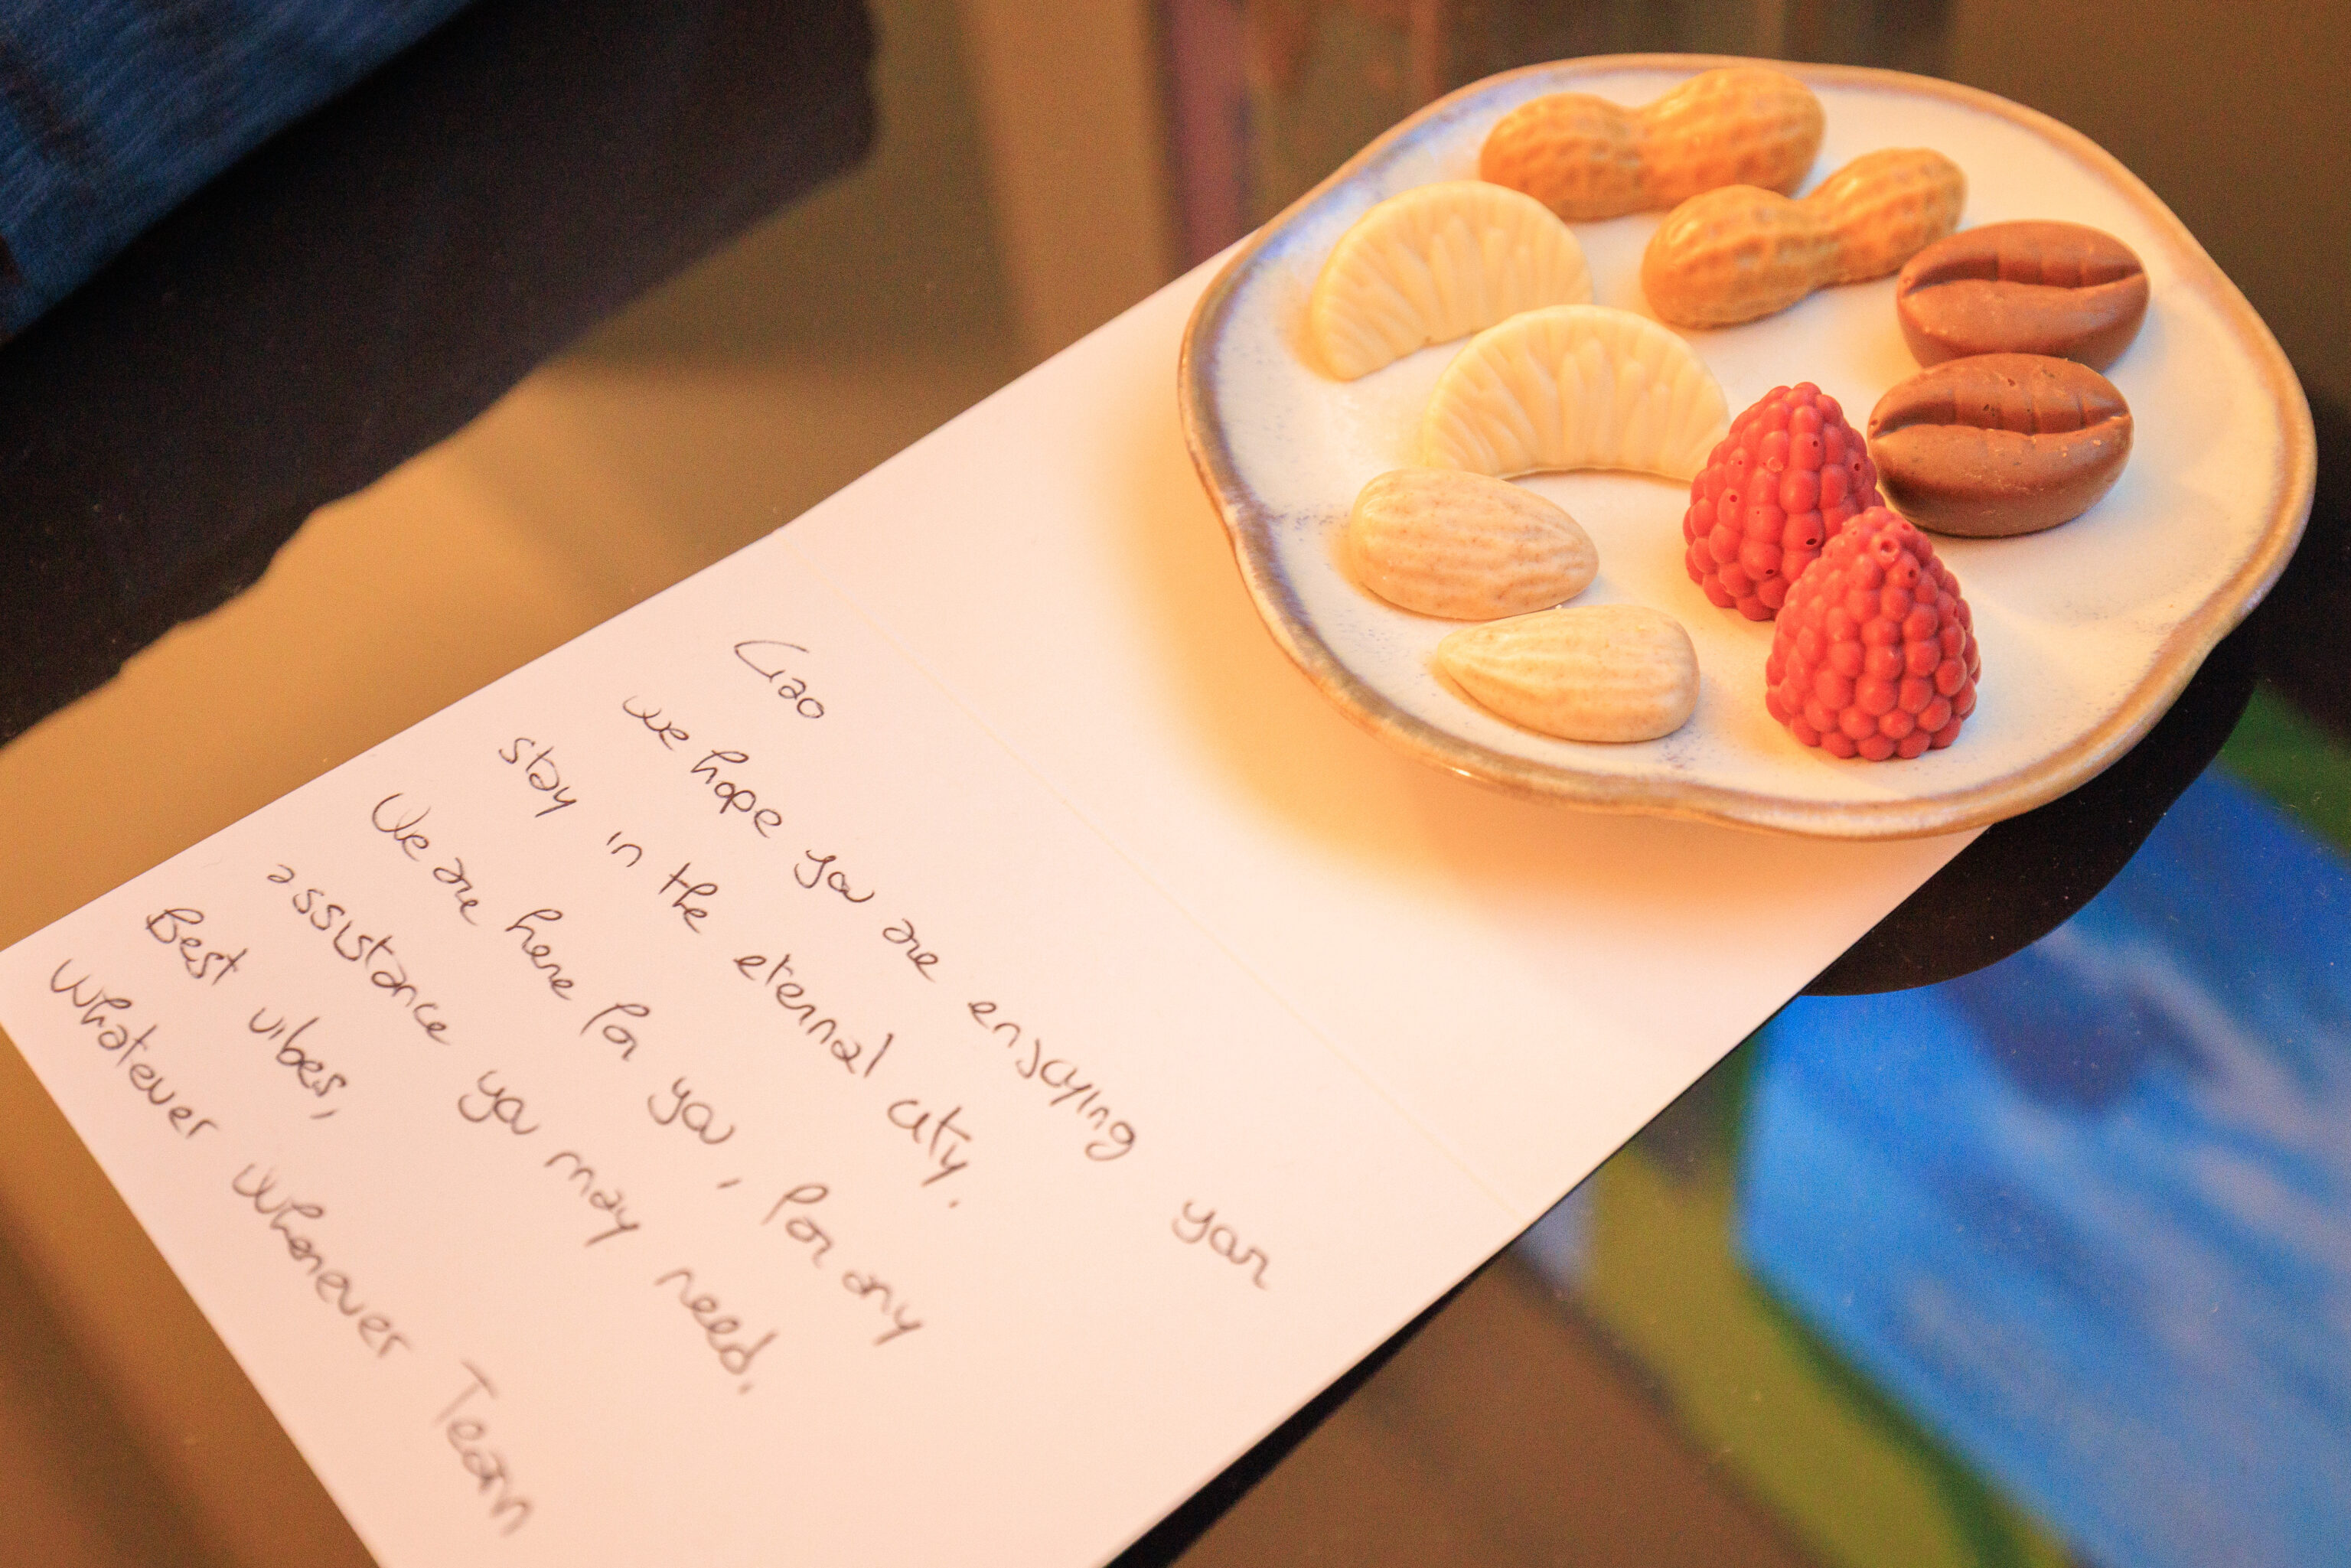 Ciao
we hope you are enjoying your
stay in the eternal city.
We are here for you, for any
assistance you may need.
Best vibes,
Whatever Whenever Team